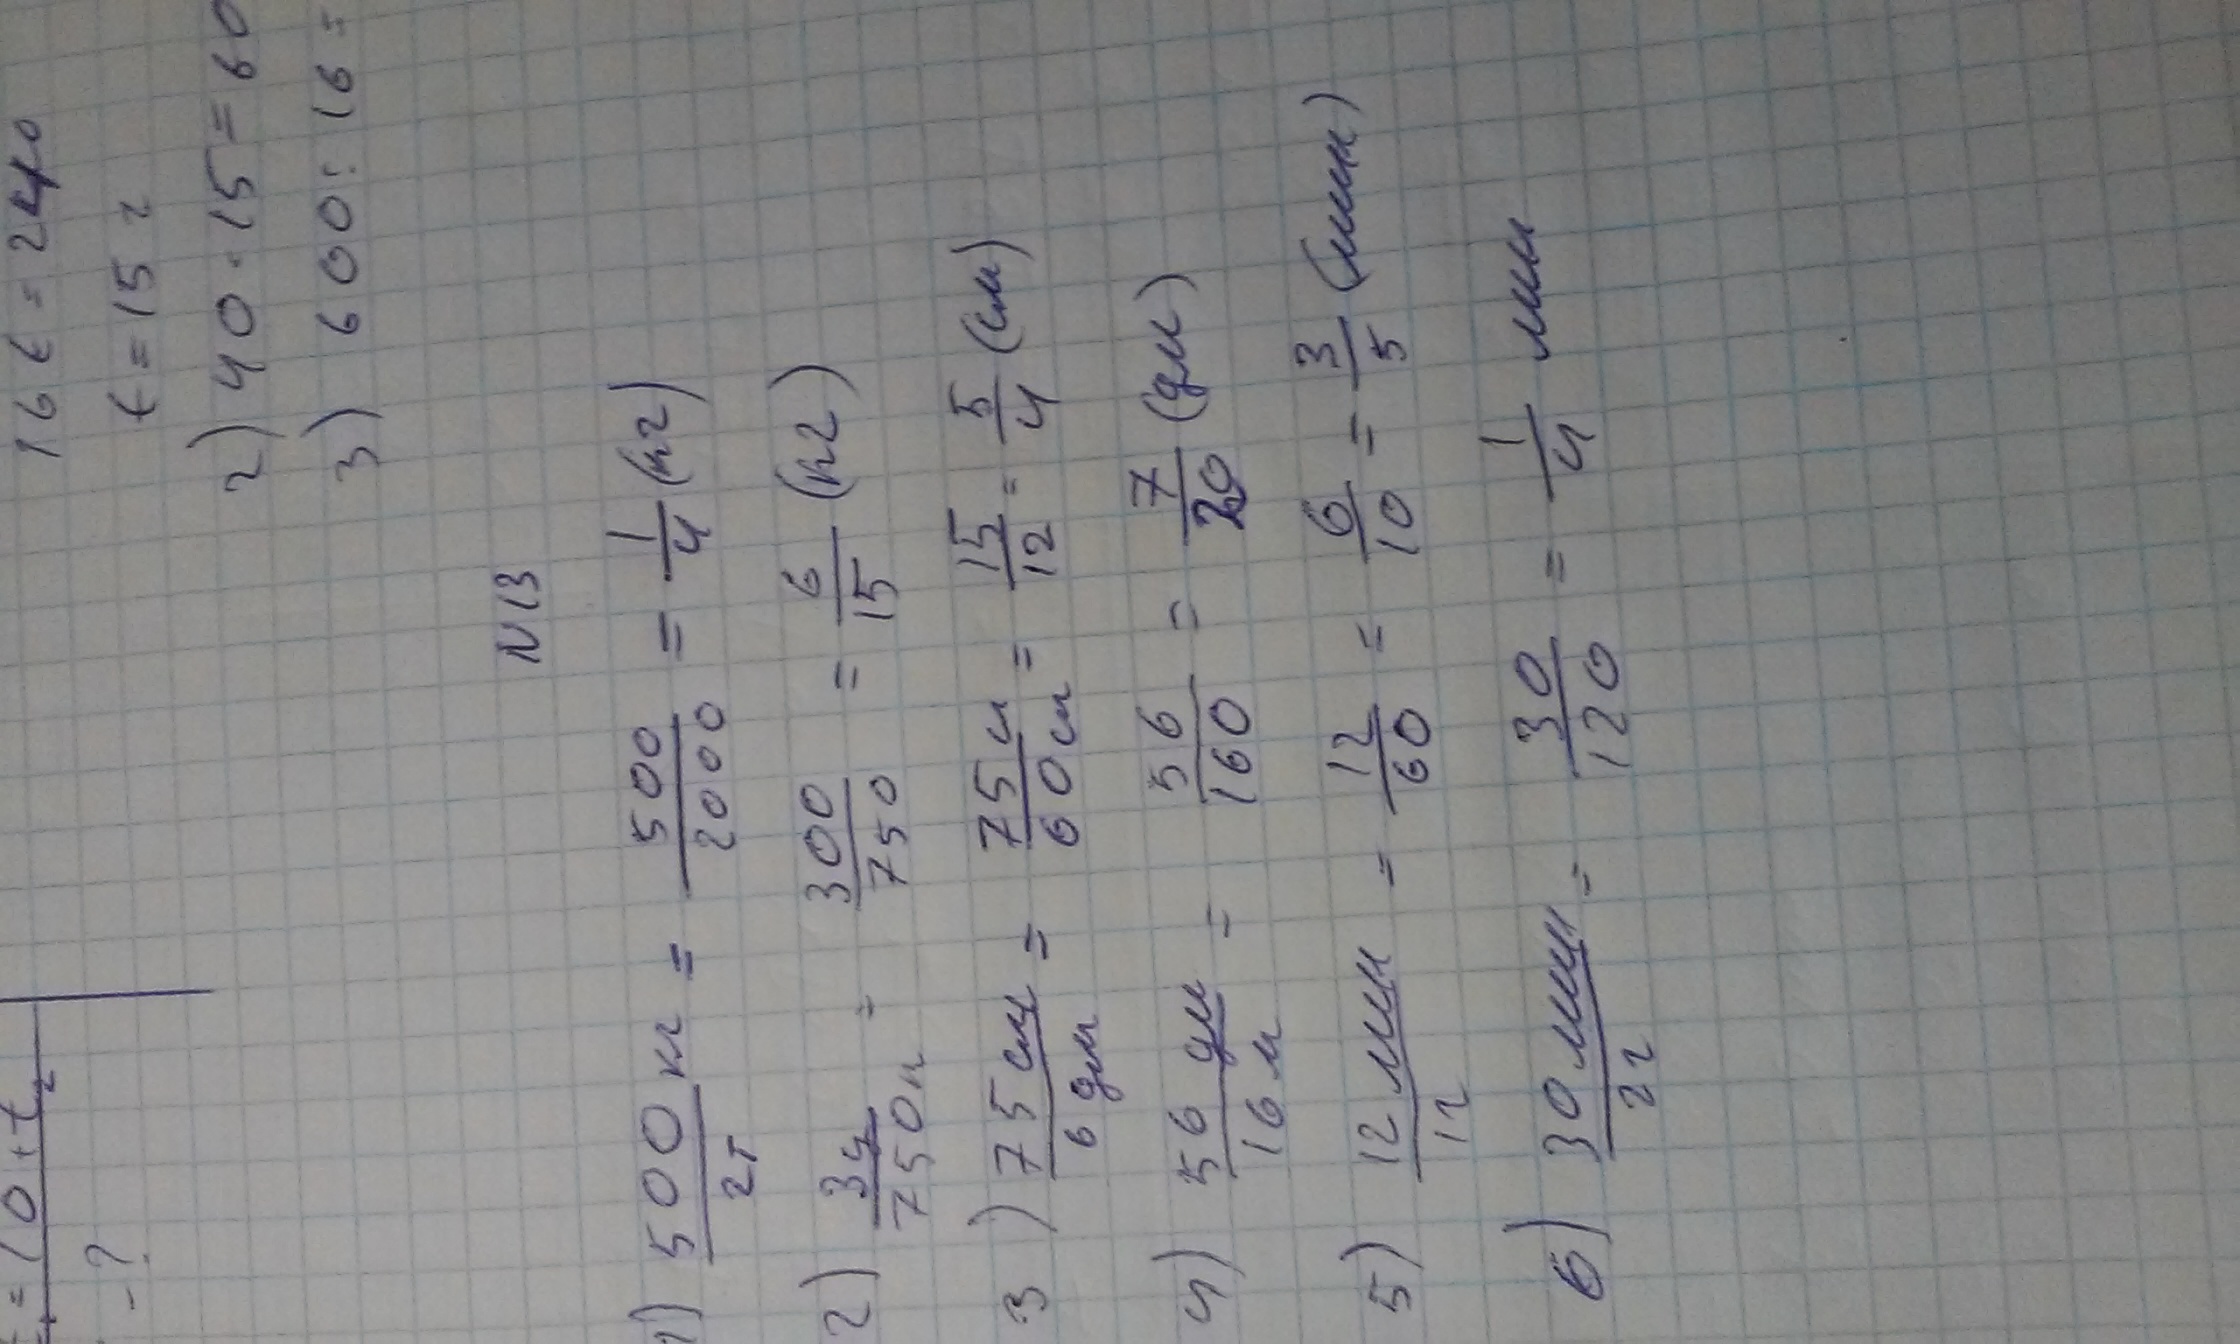 16t = 240
t = 15 г
2) 40 · 15 = 60
3) 600 : 16 =
= 10 + t₂
- ?
N13
1) 500 кг / 2т = 500/2000 = 1/4 (кг)
2) 3ц / 750к = 300/750 = 6/15 (кг)
3) 75 см / 6 дм = 75см / 60см = 15/12 = 5/4 (см)
4) 56 дм / 16 м = 56/160 = 7/20 (дм)
5) 12 мин / 1г = 12/60 = 6/10 = 3/5 (мин)
6) 30 мин / 2г = 30/120 = 1/4 мин